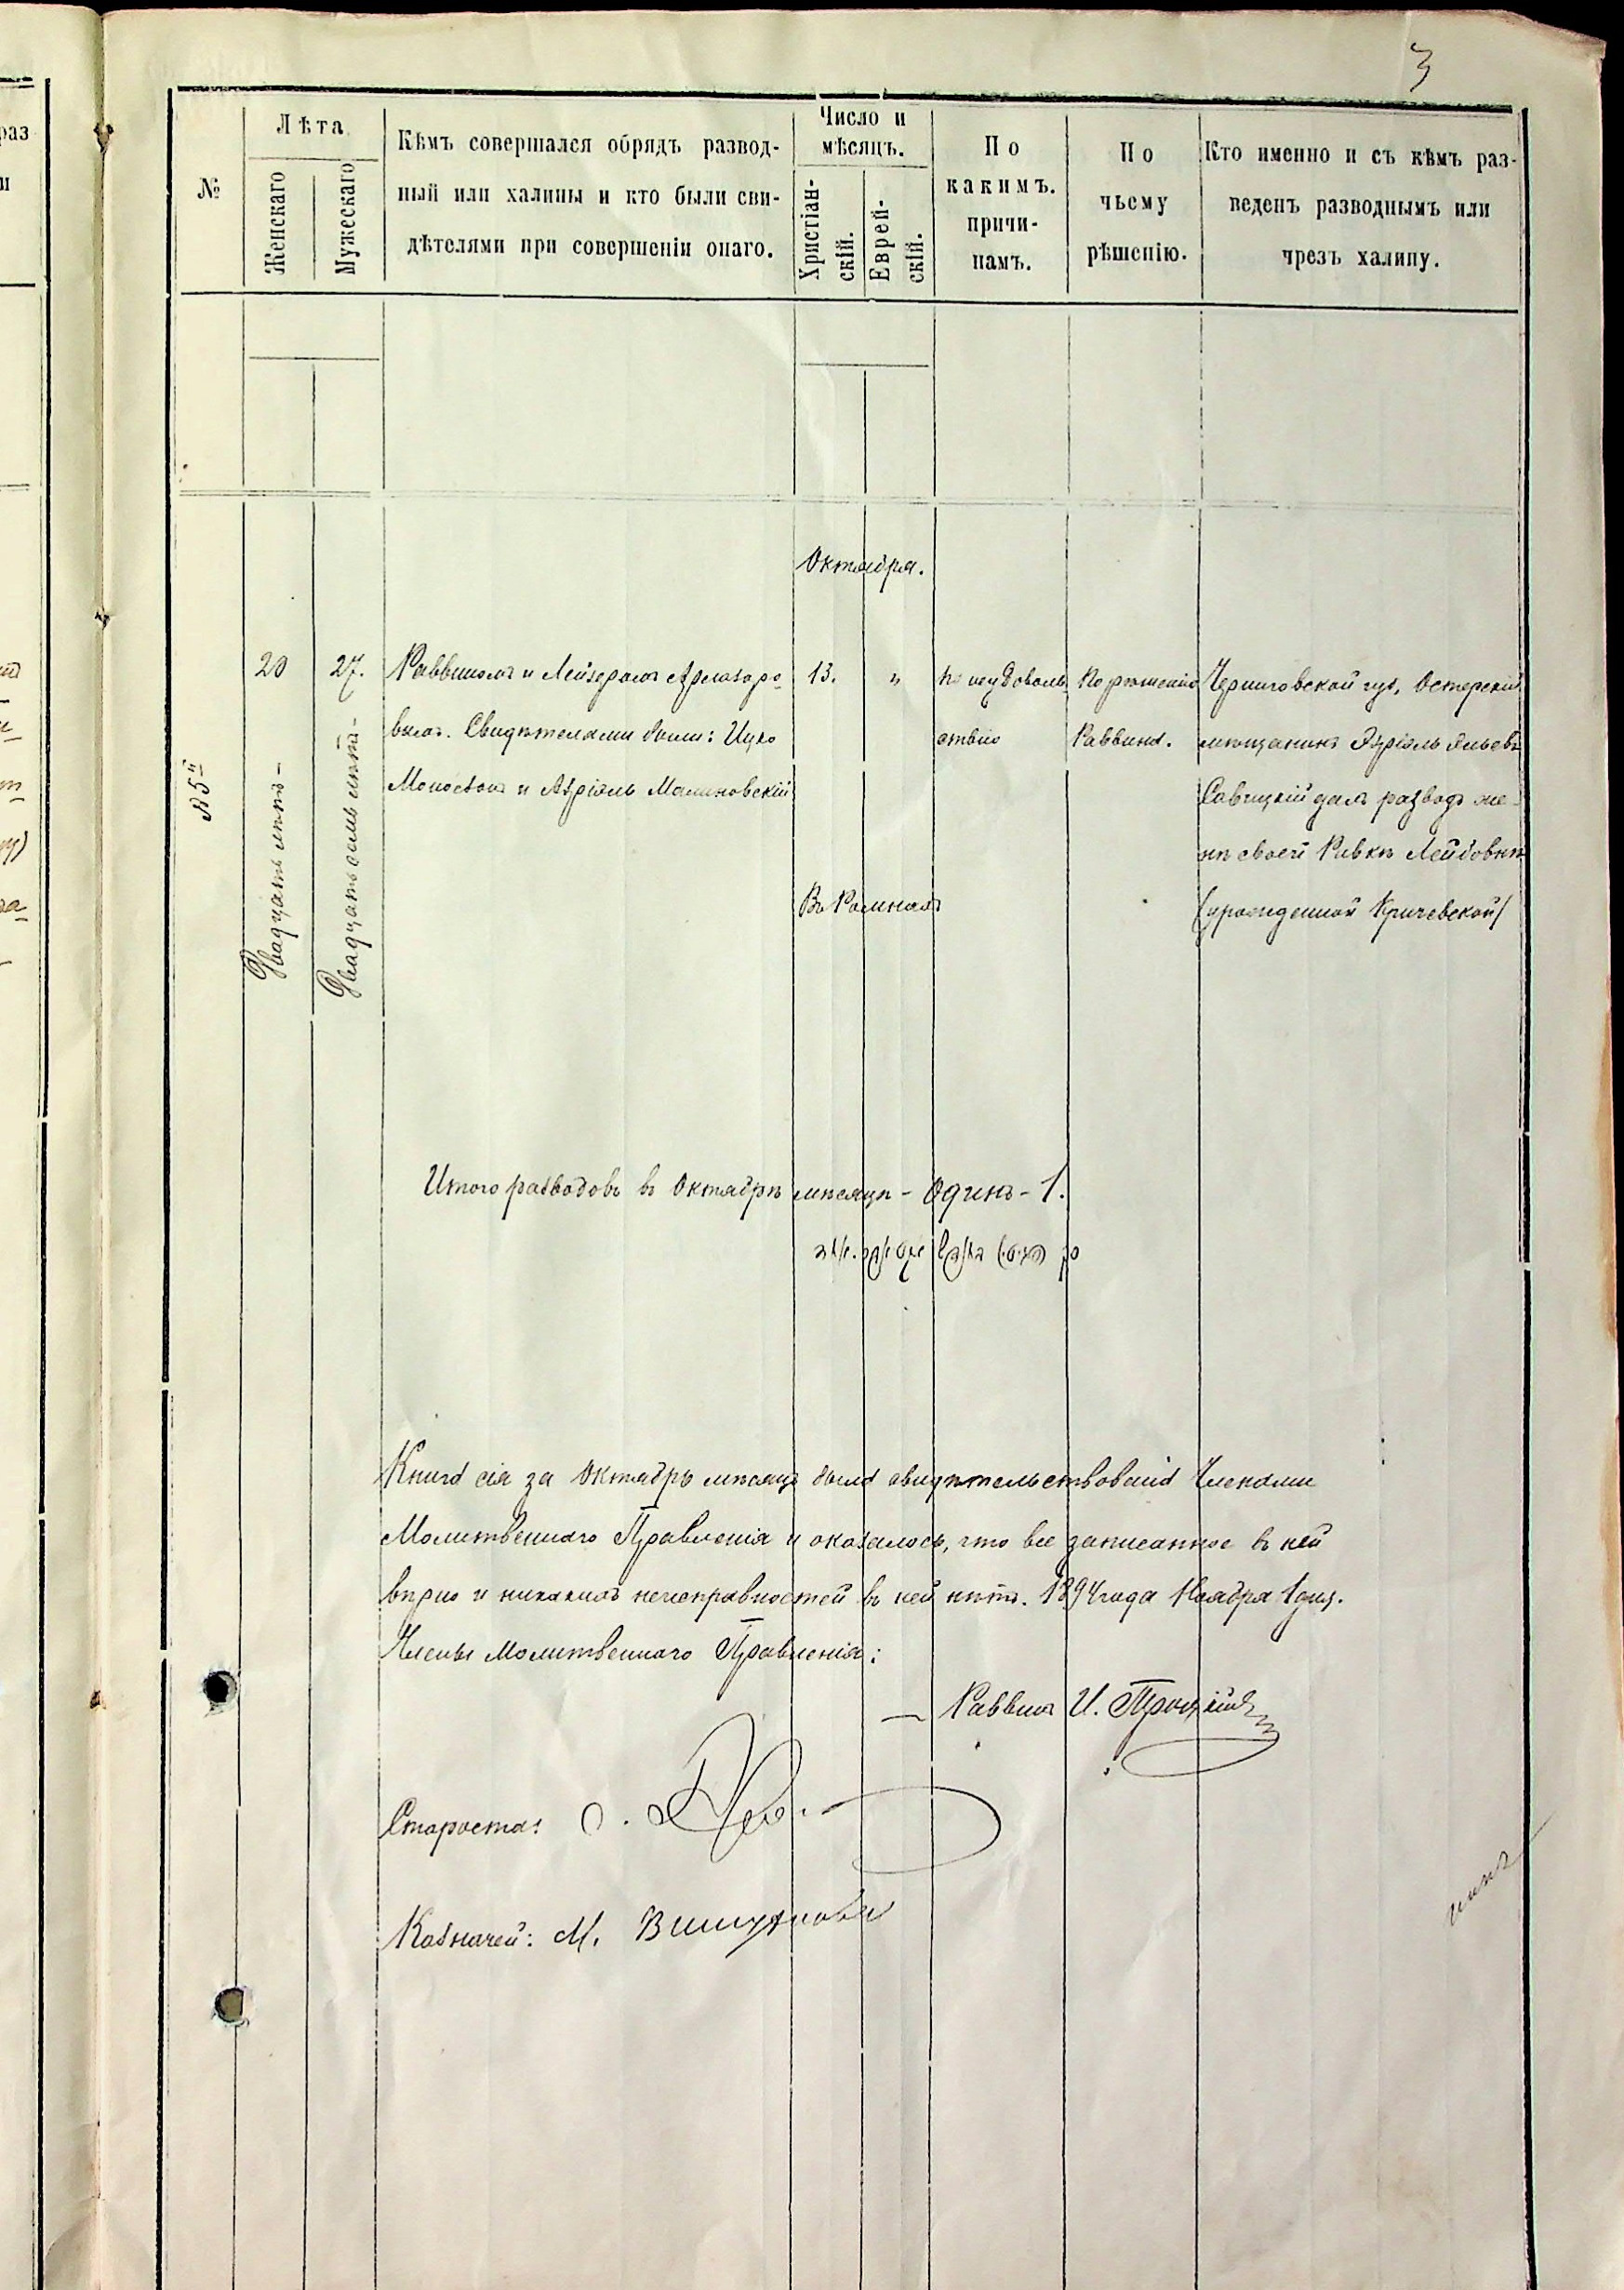 3
№
Лѣта
Женскаго
Мужескаго
Кѣмъ совершался обрядъ развод-
ный или халицы и кто были сви-
дѣтелями при совершеніи онаго.
Число и
мѣсяцъ.
Христіан-
скій.
Еврей-
скій.
По
какимъ.
причи-
намъ.
По
чьему
рѣшенію.
Кто именно и съ кѣмъ раз-
веденъ разводнымъ или
чрезъ халицу.
Октября.
№ 5й
20
Двадцать лѣтъ-
27.
Двадцать семь лѣтъ-
Раввиномъ и Лейзеромъ
вымъ. Свидѣтелями были: Ицко
и Азріэль Малиновскій
13.
"
Въ Ромнахъ
по неудоволь
ствію
По рѣшенію
Раввина.
Черниговской губ, Остерскій
мѣщанинъ Эзріэль
Савицкій далъ разводъ же-
нѣ своей Ривкѣ Лейбовнѣ
(урожденной Кричевской)
Итого разводовъ въ Октябрѣ мѣсяцѣ - одинъ - 1.
Книга сія за Октябрь мѣсяцъ была свидѣтельствована Членами
Молитвеннаго Правленія и оказалось, что все записанное въ ней
вѣрно и никакихъ неисправностей въ ней нѣтъ. 1894 года Ноября 1 дня.
Члены Молитвеннаго Правленія:
Раввинъ И.
Староста:
Казначей: М.